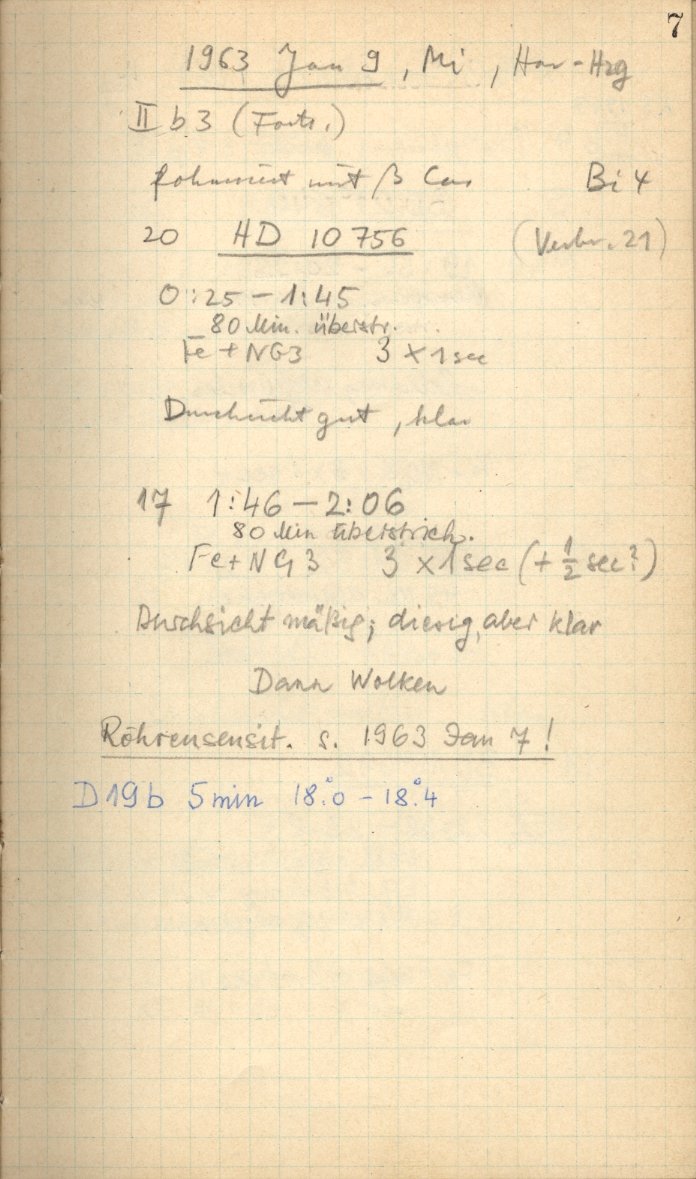 7
1963 Jan 9, Mi, Har-Hzg
II b 3 (Forts.)
fokussiert mit β Cas Bi 4
20 HD 10 756 (Verbr. 21)
0:25 – 1:45
80 Min. überstr.
Fe + NG3 3 × 1 sec
Durchsicht gut, klar
17 1:46 – 2:06
80 Min überstrich.
Fe + NG 3 3 × 1 sec (+ 1/2 sec?)
Durchsicht mäßig; diesig, aber klar
Dann Wolken
Röhrensensit. s. 1963 Jan 7!
D19b 5 min 18°.0 – 18°.4